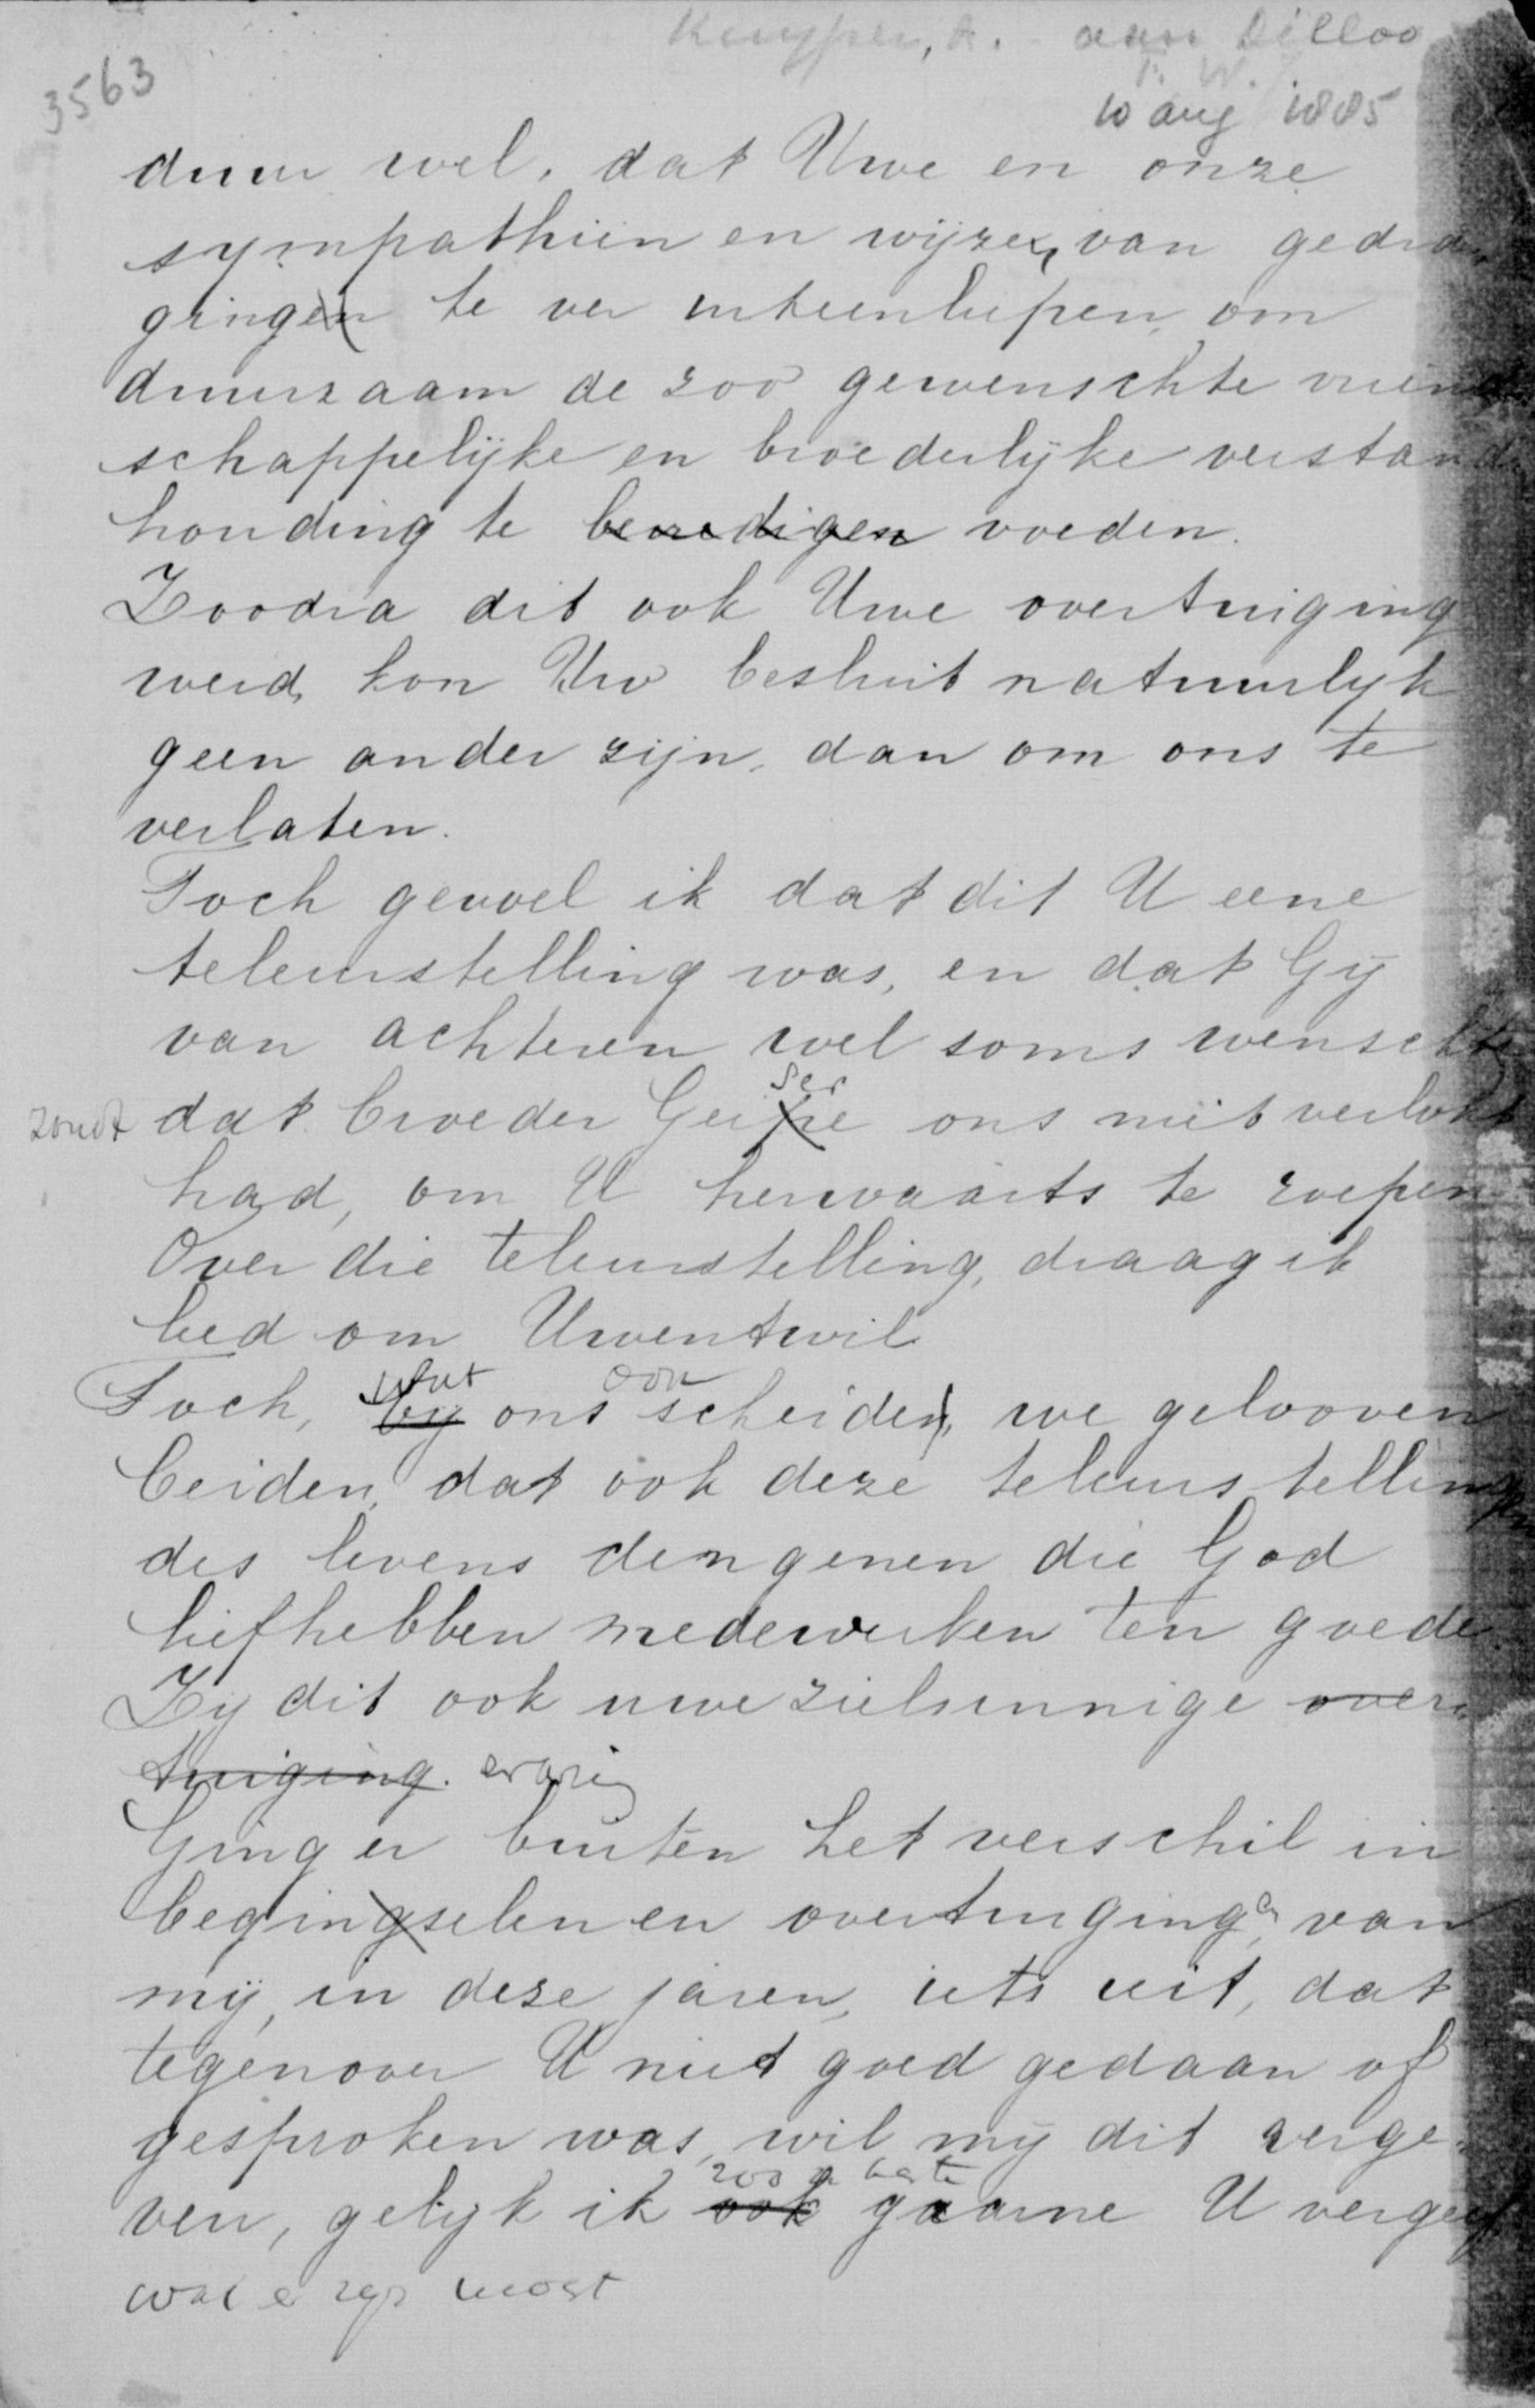 Kuyper, A. aan Dilloo
F. W.
3563
10 aug 1885
duur wel, dat Uwe en onze
sympathiën en wijze van gedra-
gingen te ver uiteenliepen, om
duurzaam de zoo gewenschte vriend
schappelijke en broederlijke verstand
houding te voeden.
Zoodra dit ook Uwe overtuiging
werd, kon Uw besluit natuurlijk
geen ander zijn, dan om ons te
verlaten.
Toch gevoel ik dat dit U eene
teleurstelling was, en dat Gij
van achteren wel soms wenschte
zoudt dat broeder ons niet verlokt
had, om U herwaarts te roepen
Over die teleurstelling, draag ik
leed om Uwentwil
Toch, wat ons ook scheide, we gelooven
beiden, dat ook deze teleurstellingen
des levens dengenen die God
liefhebben medewerken ten goede.
Zij dit ook uwe zielsinnige over-
tuiging. ervaring
Ging er buiten het verschil in
beginselen en overtuigingen, van
mij, in deze jaren, iets uit, dat
tegenover U niet goed gedaan of
gesproken was, wil mij dit verge-
ven, gelijk ik ook gaarne U vergeef